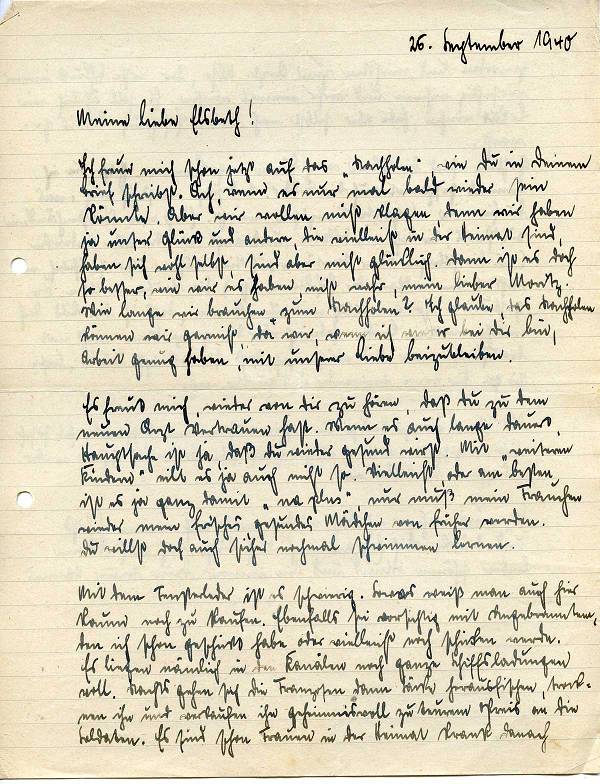 26. September 1940
Meine liebe Elsbeth!
Ich freue mich schon jetzt auf das „Nachholen" wie Du in Deinem
Brief schreibst. Ach, wenn es nur mal bald wieder sein
könnte. Aber wir wollen nicht klagen denn wir haben
ja unser Glück und andere die vielleicht in der Heimat sind,
haben sich wohl selbst, sind aber nicht glücklich. Dann ist es doch
so besser, wie wir es haben nicht wahr, mein lieber
Wie lange wir brauchen zum „Nachholen"? Ich glaube, das Nachholen
können wir garnicht, da wir, wenn ich wieder bei dir bin,
Arbeit genug haben, mit unserer Liebe beizubleiben.
Es freut mich, wieder von dir zu hören, daß du zu dem
neuen Arzt Vertrauen hast. Wenn es auch lange dauert,
Hauptsache ist ja, daß du wieder gesund wirst. Mit „weiteren
Kindern" eilt es ja auch nicht so. Vielleicht oder am besten
ist es ja ganz damit nur muß mein Frauchen
wieder mein frisches gesundes Mädchen von früher werden.
Du willst doch auch sicher nochmal schwimmen lernen.
Mit dem Fensterleder ist es schwierig. Sowas weiß man auch hier
kaum noch zu kaufen. Ebenfalls sei vorsichtig mit
den ich schon geschickt habe oder vielleicht noch schicken werde.
Es liegen nämlich in den Kanälen noch ganze Schiffsladungen
voll. Nachts gehen sich die Franzosen dann Säcke herausfischen, trock-
nen ihn und verkaufen ihn geheimnisvoll zu teurem Preis an die
Soldaten. Es sind schon Frauen in der Heimat krank danach